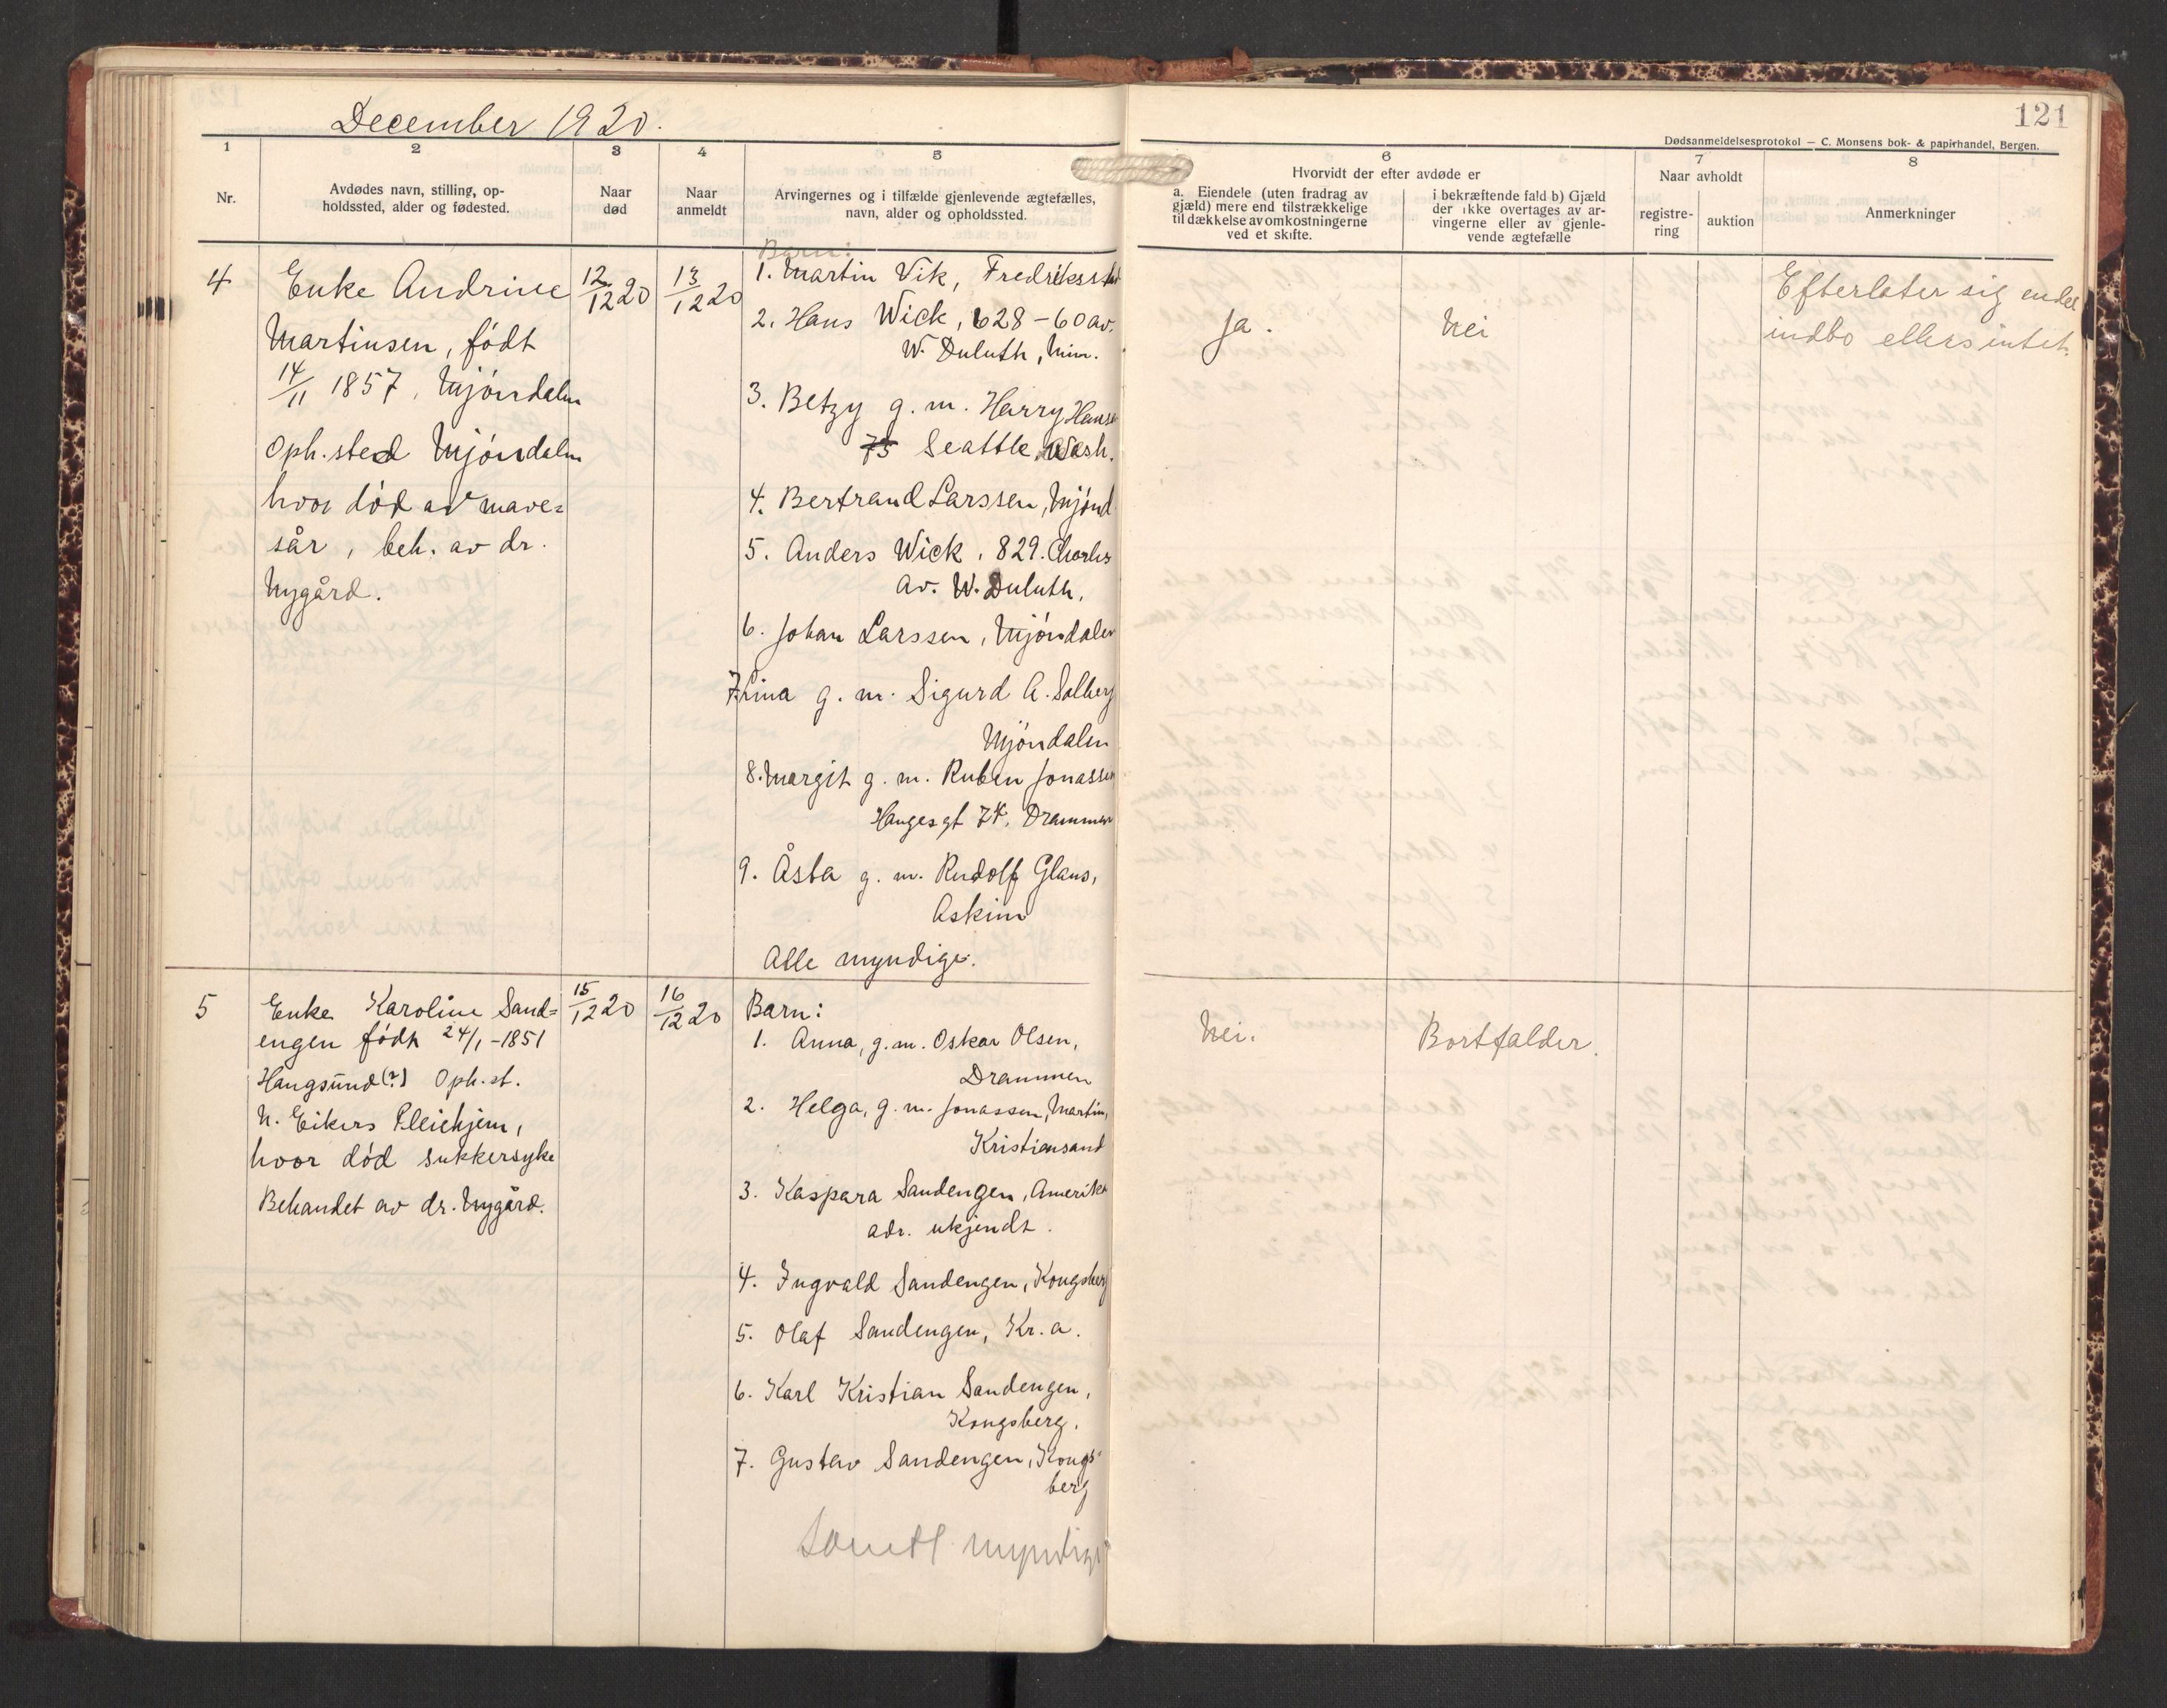 December 1920.
121
Dødsanmeldelsesprotokol — C. Monsens bok- & papirhandel, Bergen.
1
2
3
4
5
6
7
8
Nr.
Avdødes navn, stilling, op-
holdssted, alder og fødested.
Naar
død
Naar
anmeldt
Arvingernes og i tilfælde gjenlevende ægtefælles,
navn, alder og opholdssted.
Hvorvidt der efter avdøde er
a. Eiendele (uten fradrag av
gjæld) mere end tilstrækkelige
til dækkelse av omkostningerne
ved et skifte.
i bekræftende fald b) Gjæld
der ikke overtages av ar-
vingerne eller av gjenle-
vende ægtefælle
Naar avholdt
registre-
ring
auktion
Anmerkninger
4
Enke Andrine
Martinsen, født
14/11 1857, Mjöndalen
Oph.sted Mjöndalen
hvor död av mave=
sår, beh. av dr.
Nygård.
12/12 20
13/12 20
Barn:
1. Martin Vik, Fredriksstad
2. Hans Wick, 628-60 av.
W. Duluth, Min.
3. Betzy g. m. Harry Hansen
75 Seattle, Wash.
4. Bertrand Larssen, Mjönd
5. Anders Wick, 829. Charles
Av. W. Duluth.
6. Johan Larssen, Mjöndalen
7. Lina g. m. Sigurd A. Solberg
Mjöndalen
8. Margit g. m. Ruben Jonassen
Haugesgt 74, Drammen
9. Åsta g. m. Rudolf Glans,
Askim
Alle myndige.
Ja.
Nei
Efterlater sig endel
indbo ellers intet.
5
Enke Karoline Sand=
engen født 24/1-1851
Haugsund(?) Oph.st.
N. Eikers Pleiehjem,
hvor död sukkersyke
Behandlet av dr. Nygård.
15/12 20
16/12 20
Barn:
1. Anna, g. m. Oskar Olsen,
Drammen
2. Helga, g. m. Jonassen, Martin,
Kristiansand
3. Kaspara Sandengen, Amerika
adr. ukjendt.
4. Ingvald Sandengen, Kongsberg
5. Olaf Sandengen, Kr.a.
6. Karl Kristian Sandengen,
Kongsberg.
7. Gustav Sandengen, Kongs-
berg
Samtl myndige
Nei.
Bortfalder.